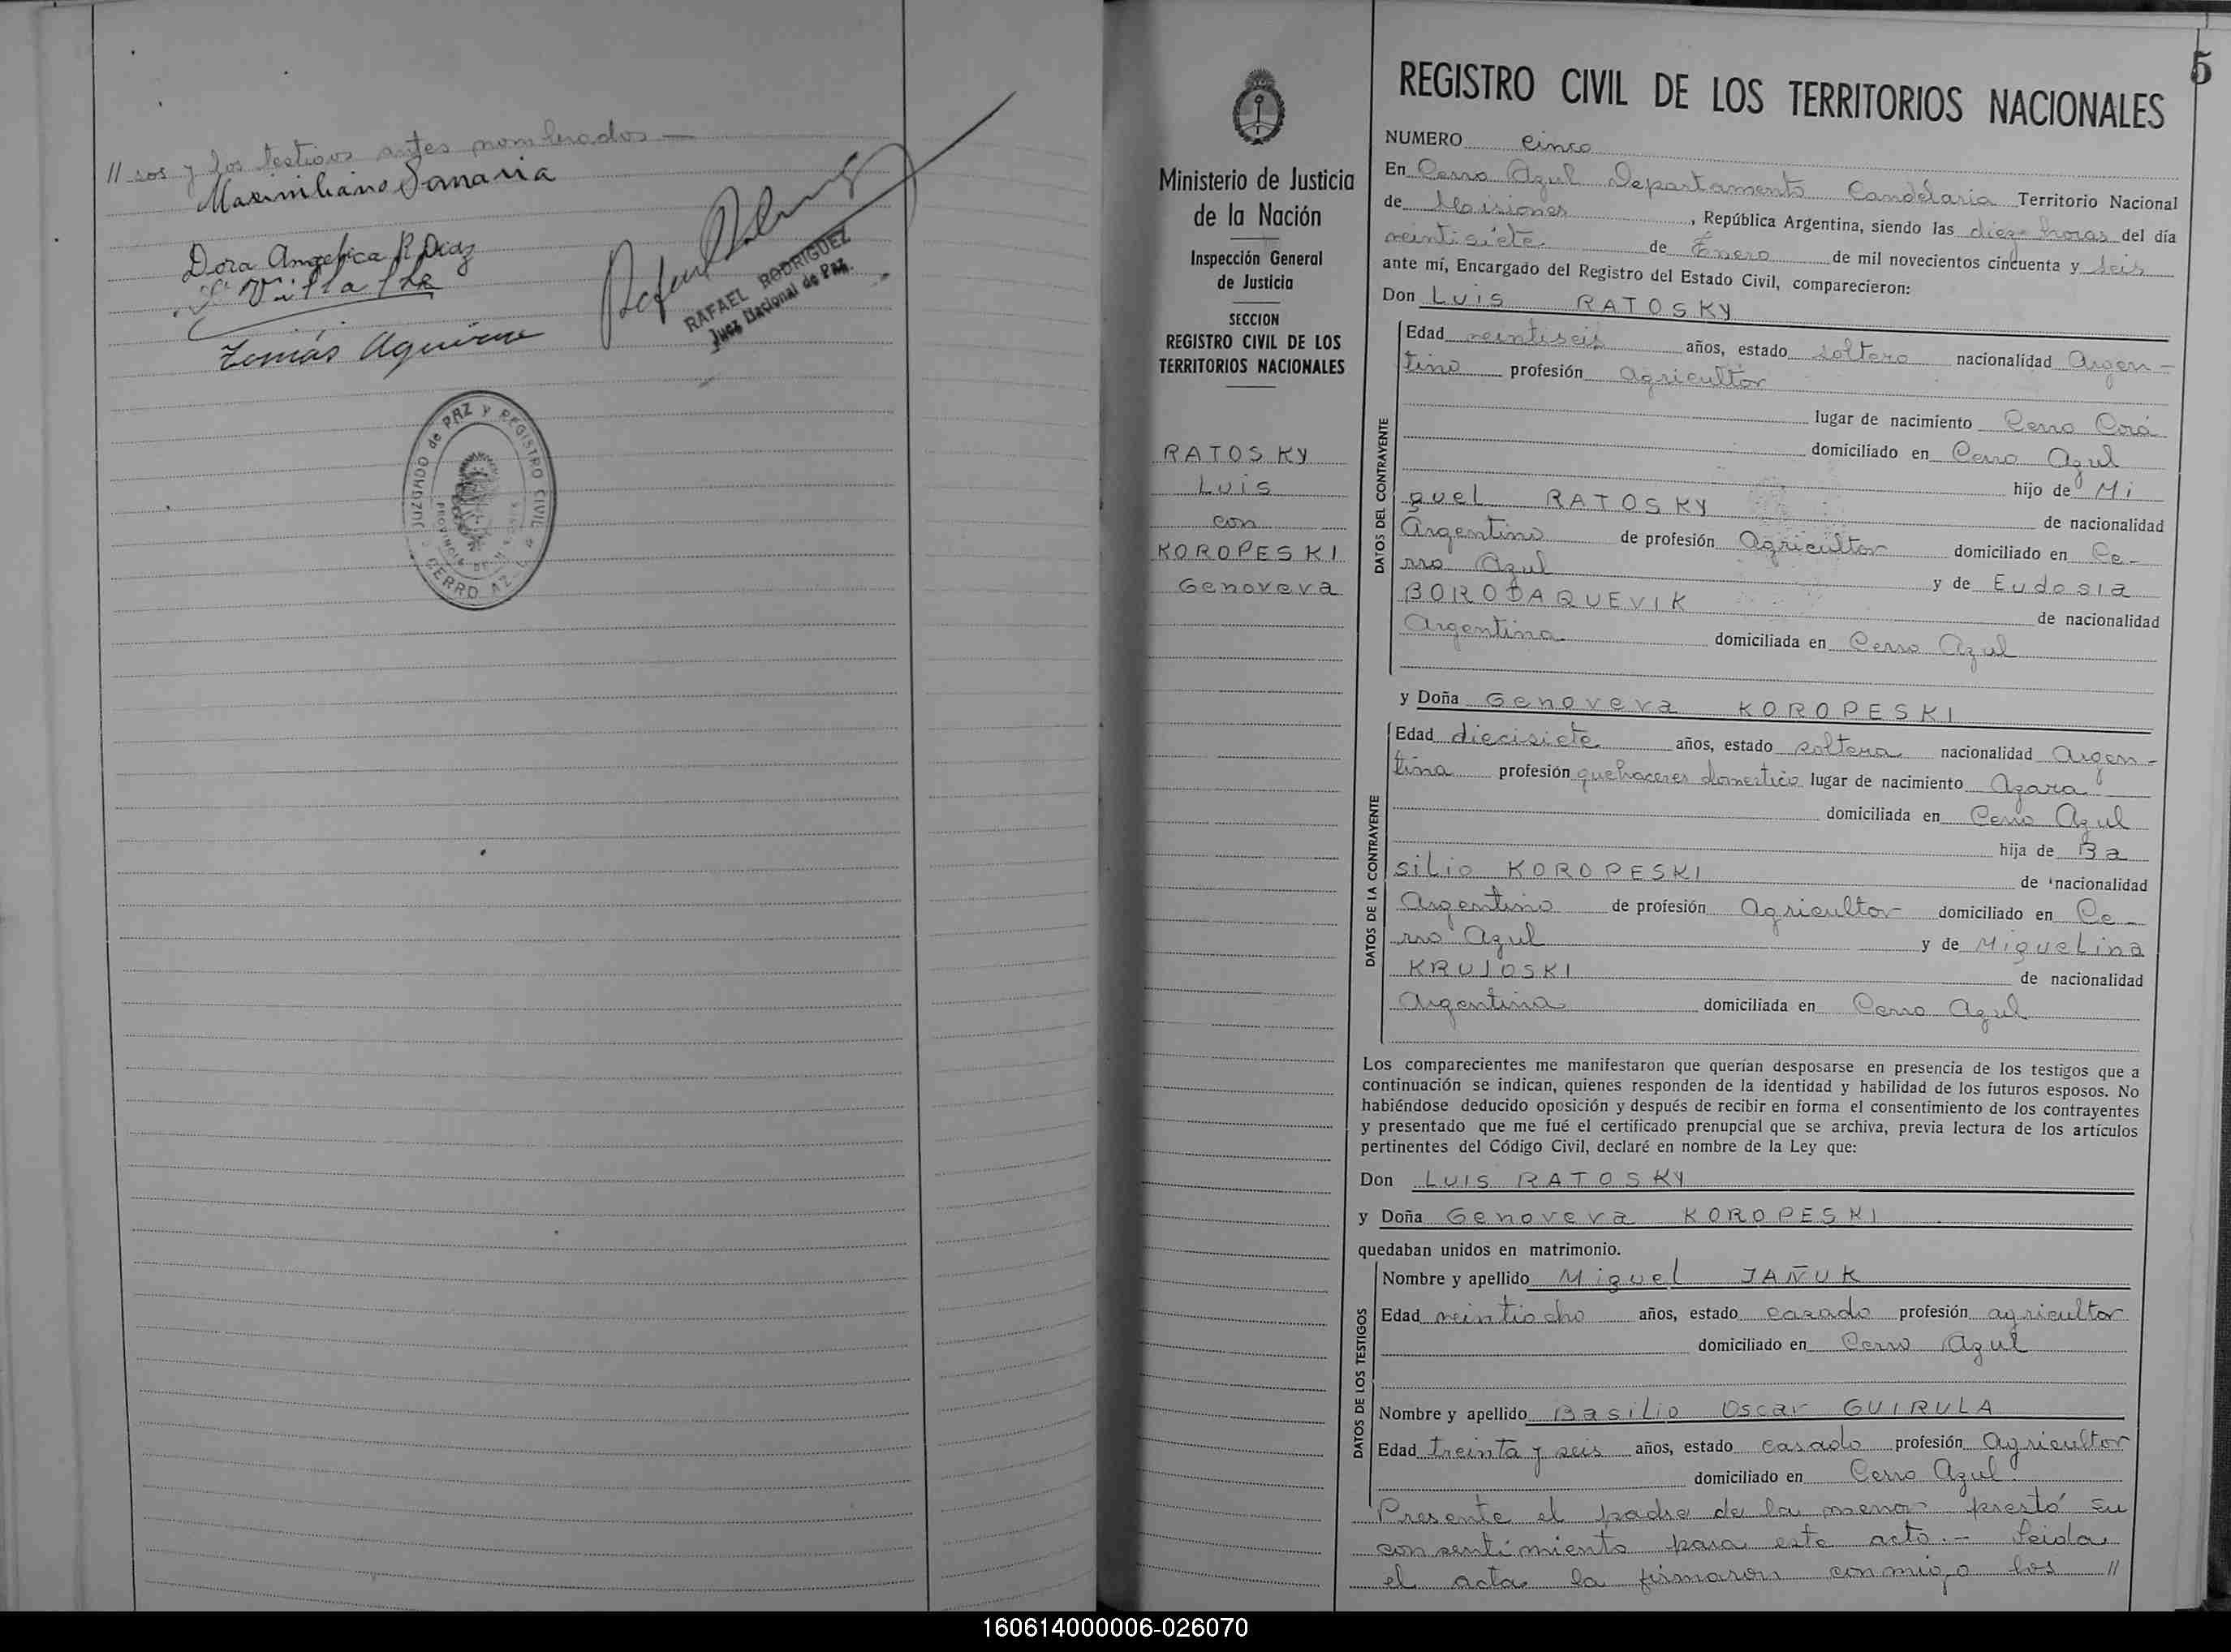 // sos y los testigos antes nombrados —
Maximiliano Sanaria
Dora Angelica R Diaz
Villalba
Tomás Aguirre
RAFAEL RODRIGUEZ
Juez Nacional de Paz
JUZGADO de PAZ y REGISTRO CIVIL
PROVINCIA DE
CERRO AZUL
5
REGISTRO CIVIL DE LOS TERRITORIOS NACIONALES
Ministerio de Justicia
de la Nación
Inspección General
de Justicia
SECCION
REGISTRO CIVIL DE LOS
TERRITORIOS NACIONALES
RATOSKY
Luis
con
KOROPESKI
Genoveva
NUMERO cinco
En Cerro Azul Departamento Candelaria Territorio Nacional
de Misiones, República Argentina, siendo las diez horas del día
veintisiete de Enero de mil novecientos cincuenta y seis
ante mí, Encargado del Registro del Estado Civil, comparecieron:
Don Luis RATOSKY
DATOS DEL CONTRAYENTE
Edad veintiseis años, estado soltero nacionalidad Argen-
tino profesión agricultor
lugar de nacimiento Cerro Corá
domiciliado en Cerro Azul
hijo de Mi
guel RATOSKY de nacionalidad
Argentino de profesión Agricultor domiciliado en Ce-
rro Azul y de Eudosia
BORODAQUEVIK de nacionalidad
Argentina domiciliada en Cerro Azul
y Doña Genoveva KOROPESKI
DATOS DE LA CONTRAYENTE
Edad diecisiete años, estado soltera nacionalidad Argen-
tina profesión quehaceres domestico lugar de nacimiento Azara
domiciliada en Cerro Azul
hija de Ba
silio KOROPESKI de nacionalidad
Argentino de profesión Agricultor domiciliado en Ce-
rro Azul y de Miguelina
KRUJOSKI de nacionalidad
Argentina domiciliada en Cerro Azul
Los comparecientes me manifestaron que querían desposarse en presencia de los testigos que a
continuación se indican, quienes responden de la identidad y habilidad de los futuros esposos. No
habiéndose deducido oposición y después de recibir en forma el consentimiento de los contrayentes
y presentado que me fué el certificado prenupcial que se archiva, previa lectura de los artículos
pertinentes del Código Civil, declaré en nombre de la Ley que:
Don LUIS RATOSKY
y Doña Genoveva KOROPESKI
quedaban unidos en matrimonio.
DATOS DE LOS TESTIGOS
Nombre y apellido Miguel JAÑUK
Edad veintiocho años, estado casado profesión agricultor
domiciliado en Cerro Azul
Nombre y apellido Basilio Oscar GUIRULA
Edad treinta y seis años, estado casado profesión Agricultor
domiciliado en Cerro Azul.
Presente el padre de la menor prestó su
consentimiento para este acto.- Leida
el acta la firmaron conmigo los //
160614000006-026070